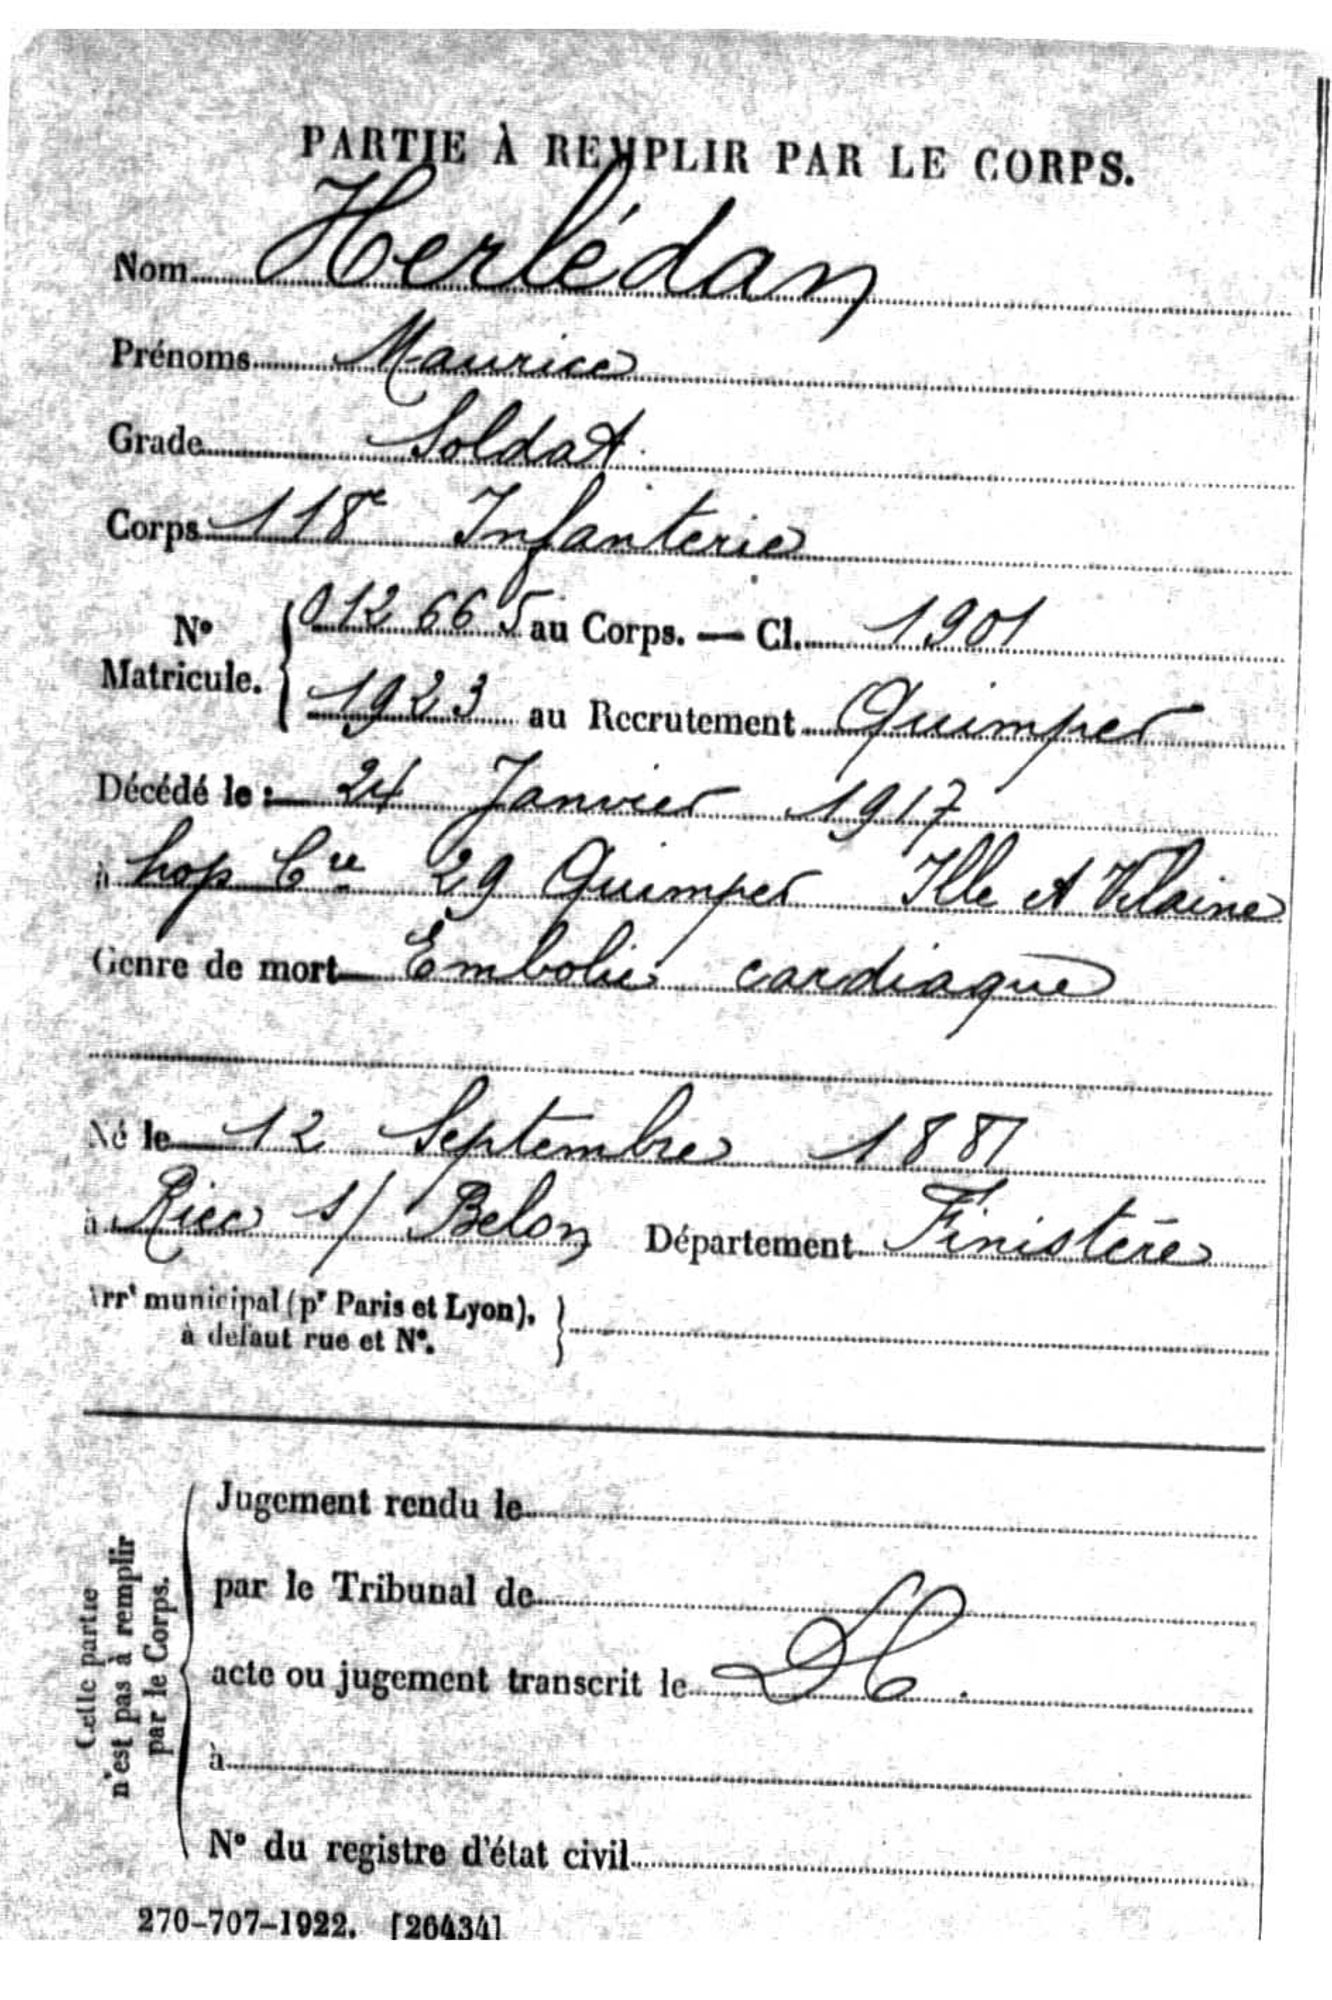 PARTIE À REMPLIR PAR LE CORPS.
Nom Herlédan
Prénoms Maurice
Grade Soldat
Corps 118e Infanterie
N° Matricule. 012665 au Corps. — Cl. 1901
1923 au Recrutement Quimper
Décédé le : 24 Janvier 1917
à hop Cre 29 Quimper Ille et Vilaine
Genre de mort Embolie cardiaque
Né le 12 Septembre 1881
à Riec s/ Belon Département Finistère
Arrt municipal (pr Paris et Lyon),
à défaut rue et N°.
Cette partie
n'est pas à remplir
par le Corps.
Jugement rendu le
par le Tribunal de
acte ou jugement transcrit le
à
N° du registre d'état civil
270-707-1922. [26434]